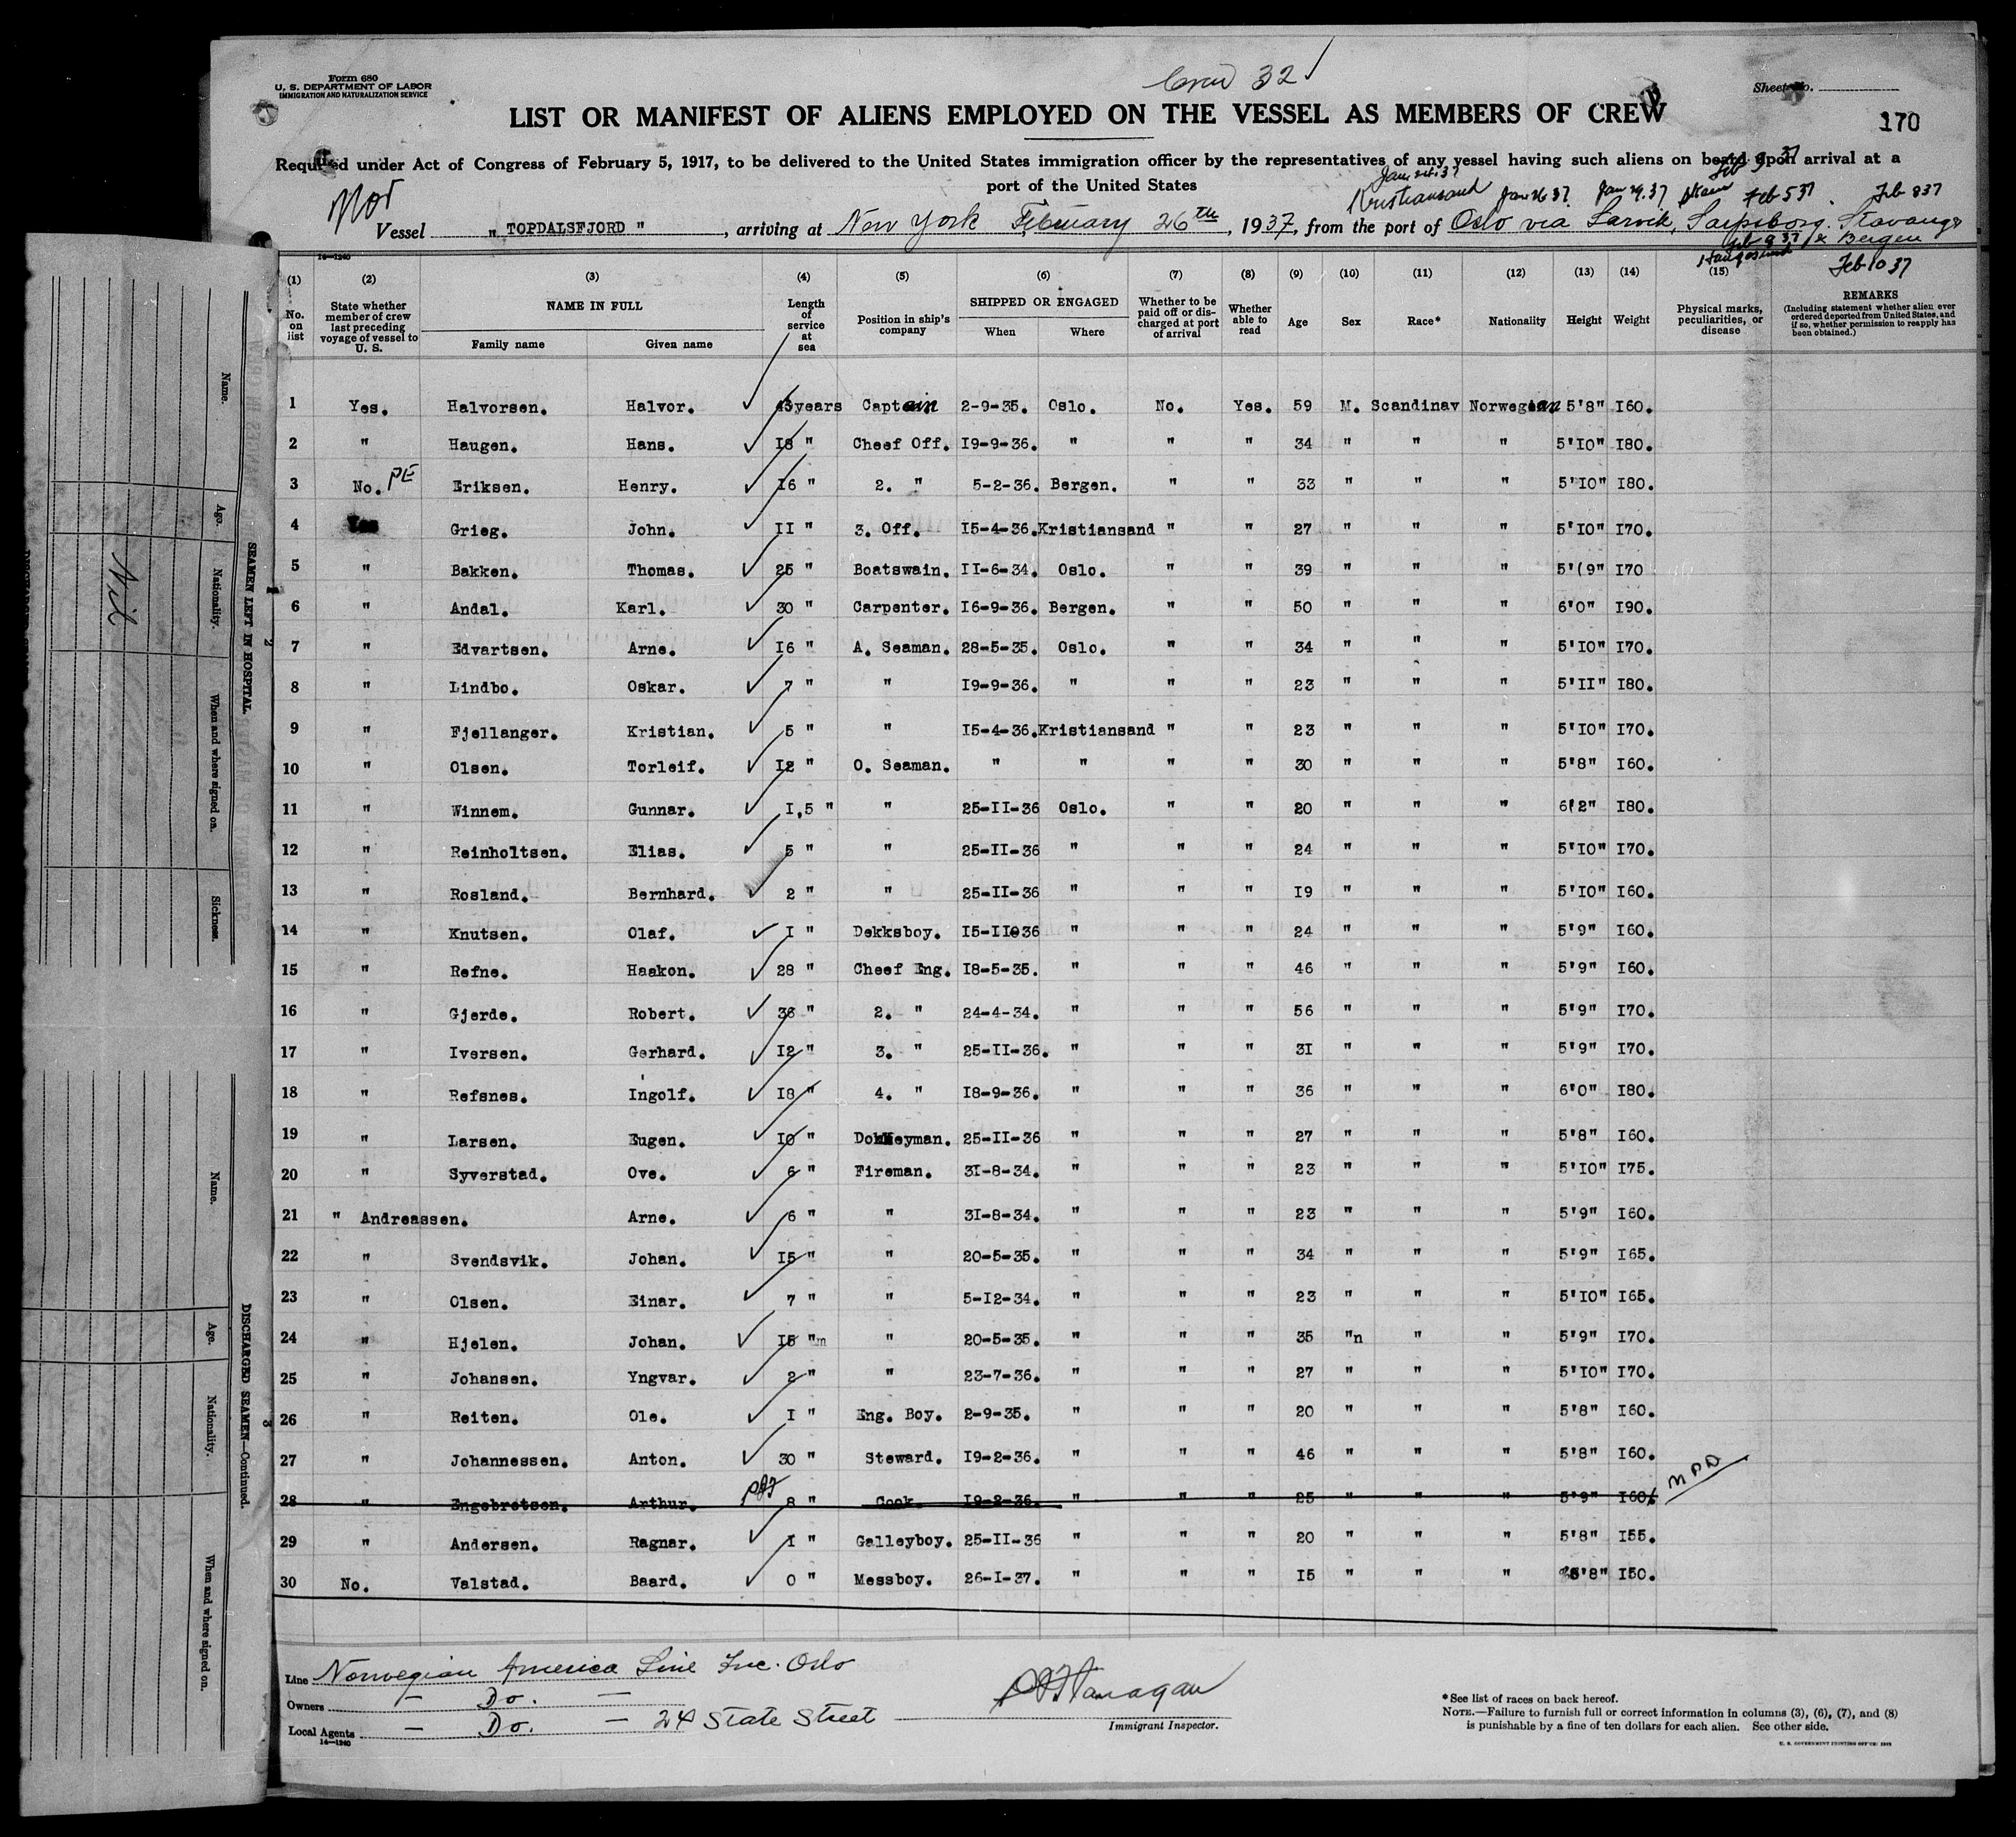 Crew 32
Form 680
U. S. DEPARTMENT OF LABOR
IMMIGRATION AND NATURALIZATION SERVICE
Sheet No.
LIST OR MANIFEST OF ALIENS EMPLOYED ON THE VESSEL AS MEMBERS OF CREW
170
Required under Act of Congress of February 5, 1917, to be delivered to the United States immigration officer by the representatives of any vessel having such aliens on board upon arrival at a
port of the United States
Feb 9 37
Kristiansand Jan 26 37. Jan 29.37 Feb 5 37. Feb 8 37
Nor
Vessel " TOPDALSFJORD ", arriving at New York February 26th, 1937, from the port of Oslo via Larvik, Sarpsborg. Stavanger
& Bergen
Feb 9 37
Haugesund Feb 10 37
14—1240
(1) (2) (3) (4) (5) (6) (7) (8) (9) (10) (11) (12) (13) (14) (15)
No. on list | State whether member of crew last preceding voyage of vessel to U. S. | NAME IN FULL Family name Given name | Length of service at sea | Position in ship's company | SHIPPED OR ENGAGED When Where | Whether to be paid off or discharged at port of arrival | Whether able to read | Age | Sex | Race* | Nationality | Height | Weight | Physical marks, peculiarities, or disease | REMARKS (Including statement whether alien ever ordered deported from United States, and if so, whether permission to reapply has been obtained.)
1 Yes. Halvorsen. Halvor. 43years Captain 2-9-35. Oslo. No. Yes. 59 M. Scandinav Norwegian 5'8" I60.
2 " Haugen. Hans. I8 " Cheef Off. I9-9-36. " " " 34 " " " 5'IO" I80.
3 No. PE Eriksen. Henry. I6 " 2. " 5-2-36. Bergen. " " 33 " " " 5'IO" I80.
4 Yes Grieg. John. II " 3. Off. I5-4-36.Kristiansand " " 27 " " " 5'IO" I70.
5 " Bakken. Thomas. 25 " Boatswain. II-6-34. Oslo. " " 39 " " " 5'(9" I70
6 " Andal. Karl. 30 " Carpenter. I6-9-36. Bergen. " " 50 " " " 6'0" I90.
7 " Edvartsen. Arne. I6 " A. Seaman. 28-5-35. Oslo. " " 34 " " " 5'IO" I70.
8 " Lindbo. Oskar. 7 " " I9-9-36. " " " 23 " " " 5'II" I80.
9 " Fjellanger. Kristian. 5 " " I5-4-36.Kristiansand " " 23 " " " 5'IO" I70.
10 " Olsen. Torleif. I2 " O. Seaman. " " " " 30 " " " 5'8" I60.
11 " Winnem. Gunnar. I,5 " " 25-II-36 Oslo. " " 20 " " " 6'2" I80.
12 " Reinholtsen. Elias. 5 " " 25-II-36 " " " 24 " " " 5'IO" I70.
13 " Rosland. Bernhard. 2 " " 25-II-36 " " " I9 " " " 5'IO" I60.
14 " Knutsen. Olaf. I " Dekksboy. I5-II036 " " " 24 " " " 5'9" I60.
15 " Refne. Haakon. 28 " Cheef Eng. I8-5-35. " " " 46 " " " 5'9" I60.
16 " Gjerde. Robert. 36 " 2. " 24-4-34. " " " 56 " " " 5'9" I70.
17 " Iversen. Gerhard. I2 " 3. " 25-II-36. " " " 3I " " " 5'9" I70.
18 " Refsnes. Ingolf. I8 " 4. " I8-9-36. " " " 36 " " " 6'0" I80.
19 " Larsen. Eugen. IO " Donkeyman. 25-II-36 " " " 27 " " " 5'8" I60.
20 " Syverstad. Ove. 6 " Fireman. 3I-8-34. " " " 23 " " " 5'IO" I75.
21 " Andreassen. Arne. 6 " " 3I-8-34. " " " 23 " " " 5'9" I60.
22 " Svendsvik. Johan. I5 " " 20-5-35. " " " 34 " " " 5'9" I65.
23 " Olsen. Einar. 7 " " 5-I2-34. " " " 23 " " " 5'IO" I65.
24 " Hjelen. Johan. I5 "m " 20-5-35. " " " 35 "n " " 5'9" I70.
25 " Johansen. Yngvar. 2 " " 23-7-36. " " " 27 " " " 5'IO" I70.
26 " Reiten. Ole. I " Eng. Boy. 2-9-35. " " " 20 " " " 5'8" I60.
27 " Johannessen. Anton. 30 " Steward. I9-2-36. " " " 46 " " " 5'8" I60.
28 " Engebretsen. Arthur. 8 " Cook. I9-2-36. " " " 25 " " " 5'9" I60.
29 " Andersen. Ragnar. I " Galleyboy. 25-II-36 " " " 20 " " " 5'8" I55.
30 No. Valstad. Baard. 0 " Messboy. 26-I-37. " " " I5 " " " 5'8" I50.
Line Norwegian America Line Inc. Oslo
Owners — Do. —
Local Agents — Do. — 24 State Street
14—1240
Immigrant Inspector.
*See list of races on back hereof.
NOTE.—Failure to furnish full or correct information in columns (3), (6), (7), and (8)
is punishable by a fine of ten dollars for each alien. See other side.
SEAMEN LEFT IN HOSPITAL
2
Name. Age. Nationality. When and where signed on. Sickness.
Nil
DISCHARGED SEAMEN—Continued.
3
Name. Age. Nationality. When and where signed on.